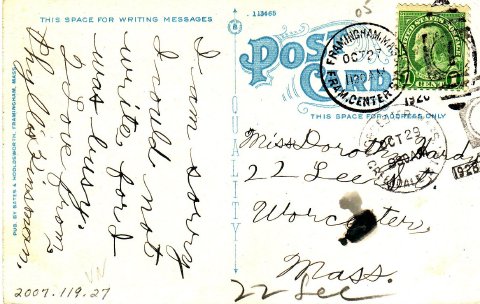 THIS SPACE FOR WRITING MESSAGES
I am sorry
I could not
write, for I
was busy.
Love from
Phyllis
PUB. BY BATES & HOLDSWORTH, FRAMINGHAM, MASS.
2007.119.27
113465
05
POST CARD
QUALITY
THIS SPACE FOR ADDRESS ONLY
FRAMINGHAM, MASS.
OCT 2
FRAM. CENTER
1926
1 CENT 1
OCT 29
1926
Miss Dorothy Ward
22 Lee St.
Worcester,
Mass.
22 Lee